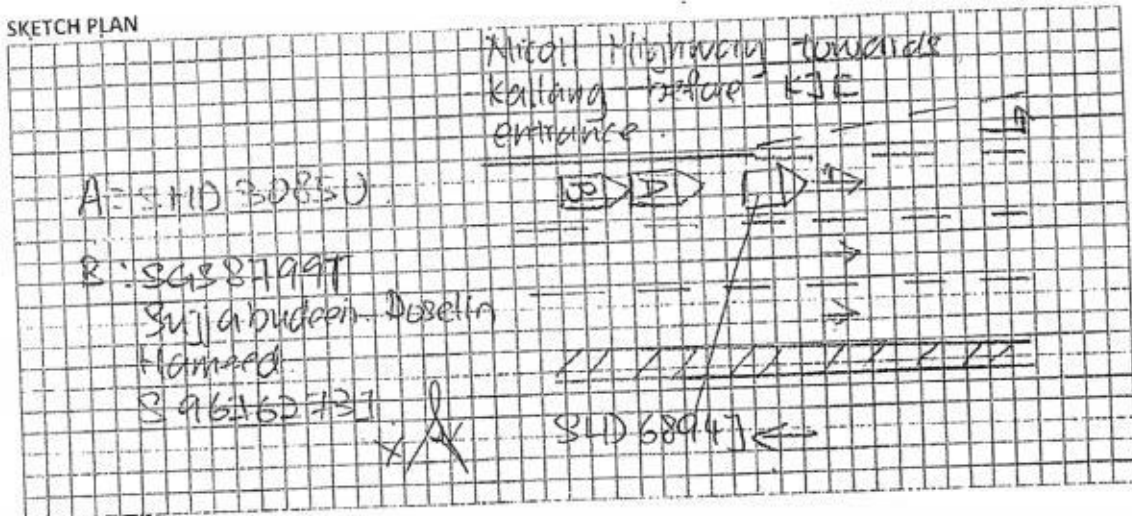 SKETCH PLAN
Nicoll Highway towards
Kallang before KJE
entrance.
B A
A = SHD 3085U
B : SGS8799T
Sujjabudeen
Hameed
SHD 6894J